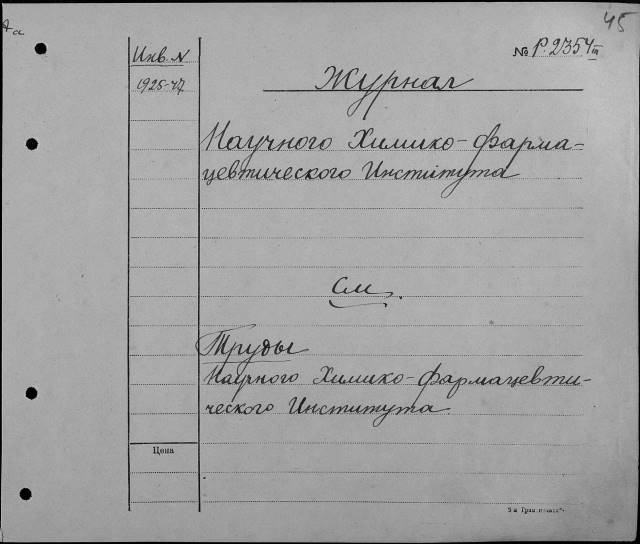 45
Инв. N
№ Р. 2354 III
1925-47
Журнал
Научного Химико-фарма-
цевтического Института
См.
Труды
Научного Химико-фармацевти-
ческого Института
Цена